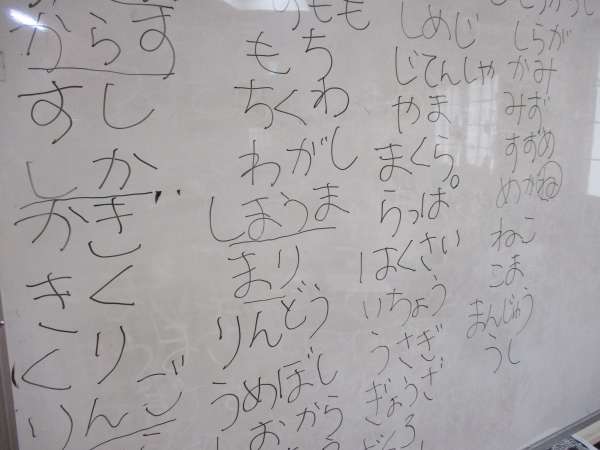 からす
すし
しか
かき
きく
くり
りんご
もち
ちくわ
わがし
しまうま
まり
りんどう
うめぼし
おから
しめじ
じてんしゃ
やま
まくら
らっぱ
はくさい
いちょう
うさぎ
ぎょうざ
しらが
かみ
みず
すずめ
めがね
ねこ
こま
まんじゅう
うし